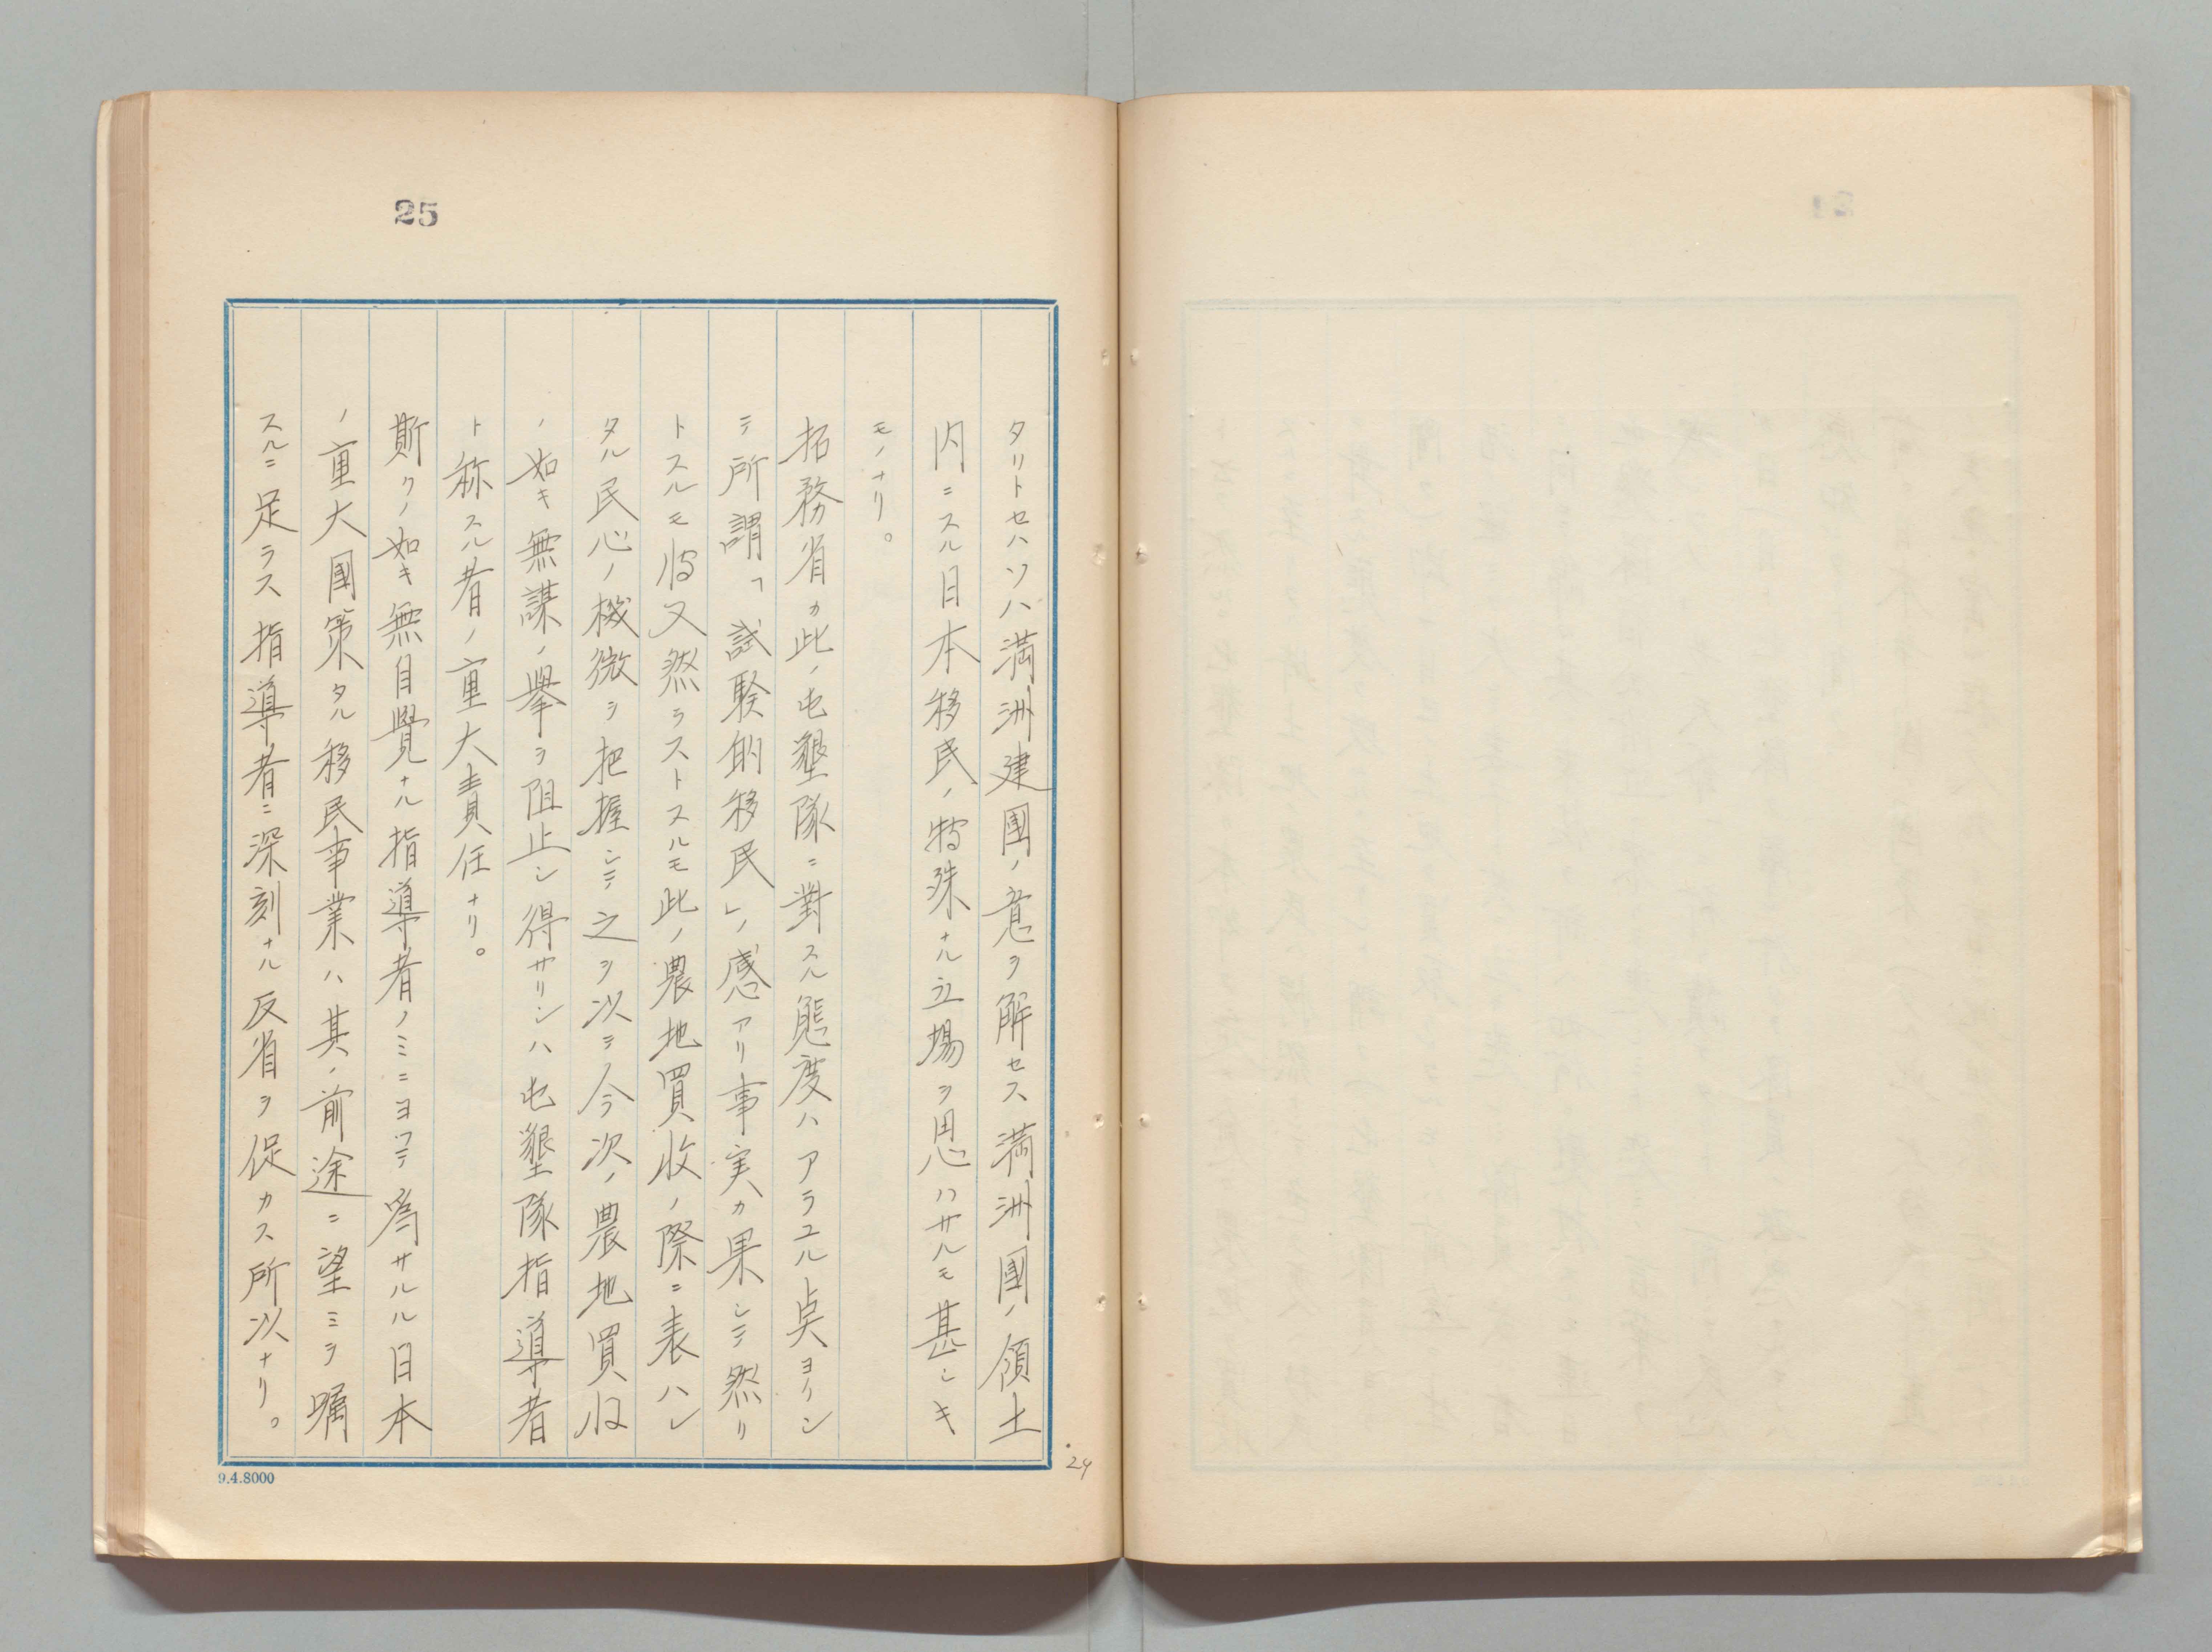 25
タリトセハソハ満洲建國ノ意ヲ解セス満洲國ノ領土
内ニスル日本移民ノ特殊ナル立場ヲ思ハサルモ甚シキ
モノナリ。
拓務省カ此ノ屯墾隊ニ對スル態度ハアラユル点ヨリシ
テ所謂「試験的移民」ノ感アリ事実カ果シテ然リ
トスルモ将又然ラストスルモ此ノ農地買收ノ際ニ表ハレ
タル民心ノ機微ヲ把握シテ之ヲ以テ今次ノ農地買収
ノ如キ無謀ノ擧ヲ阻止シ得サリシハ屯墾隊指導者
ト称スル者ノ重大責任ナリ。
斯クノ如キ無自覺ナル指導者ノミニヨツテ為サルル日本
ノ重大國策タル移民事業ハ其ノ前途ニ望ミヲ嘱
スルニ足ラス指導者ニ深刻ナル反省ヲ促カス所以ナリ。
24
9.4.8000